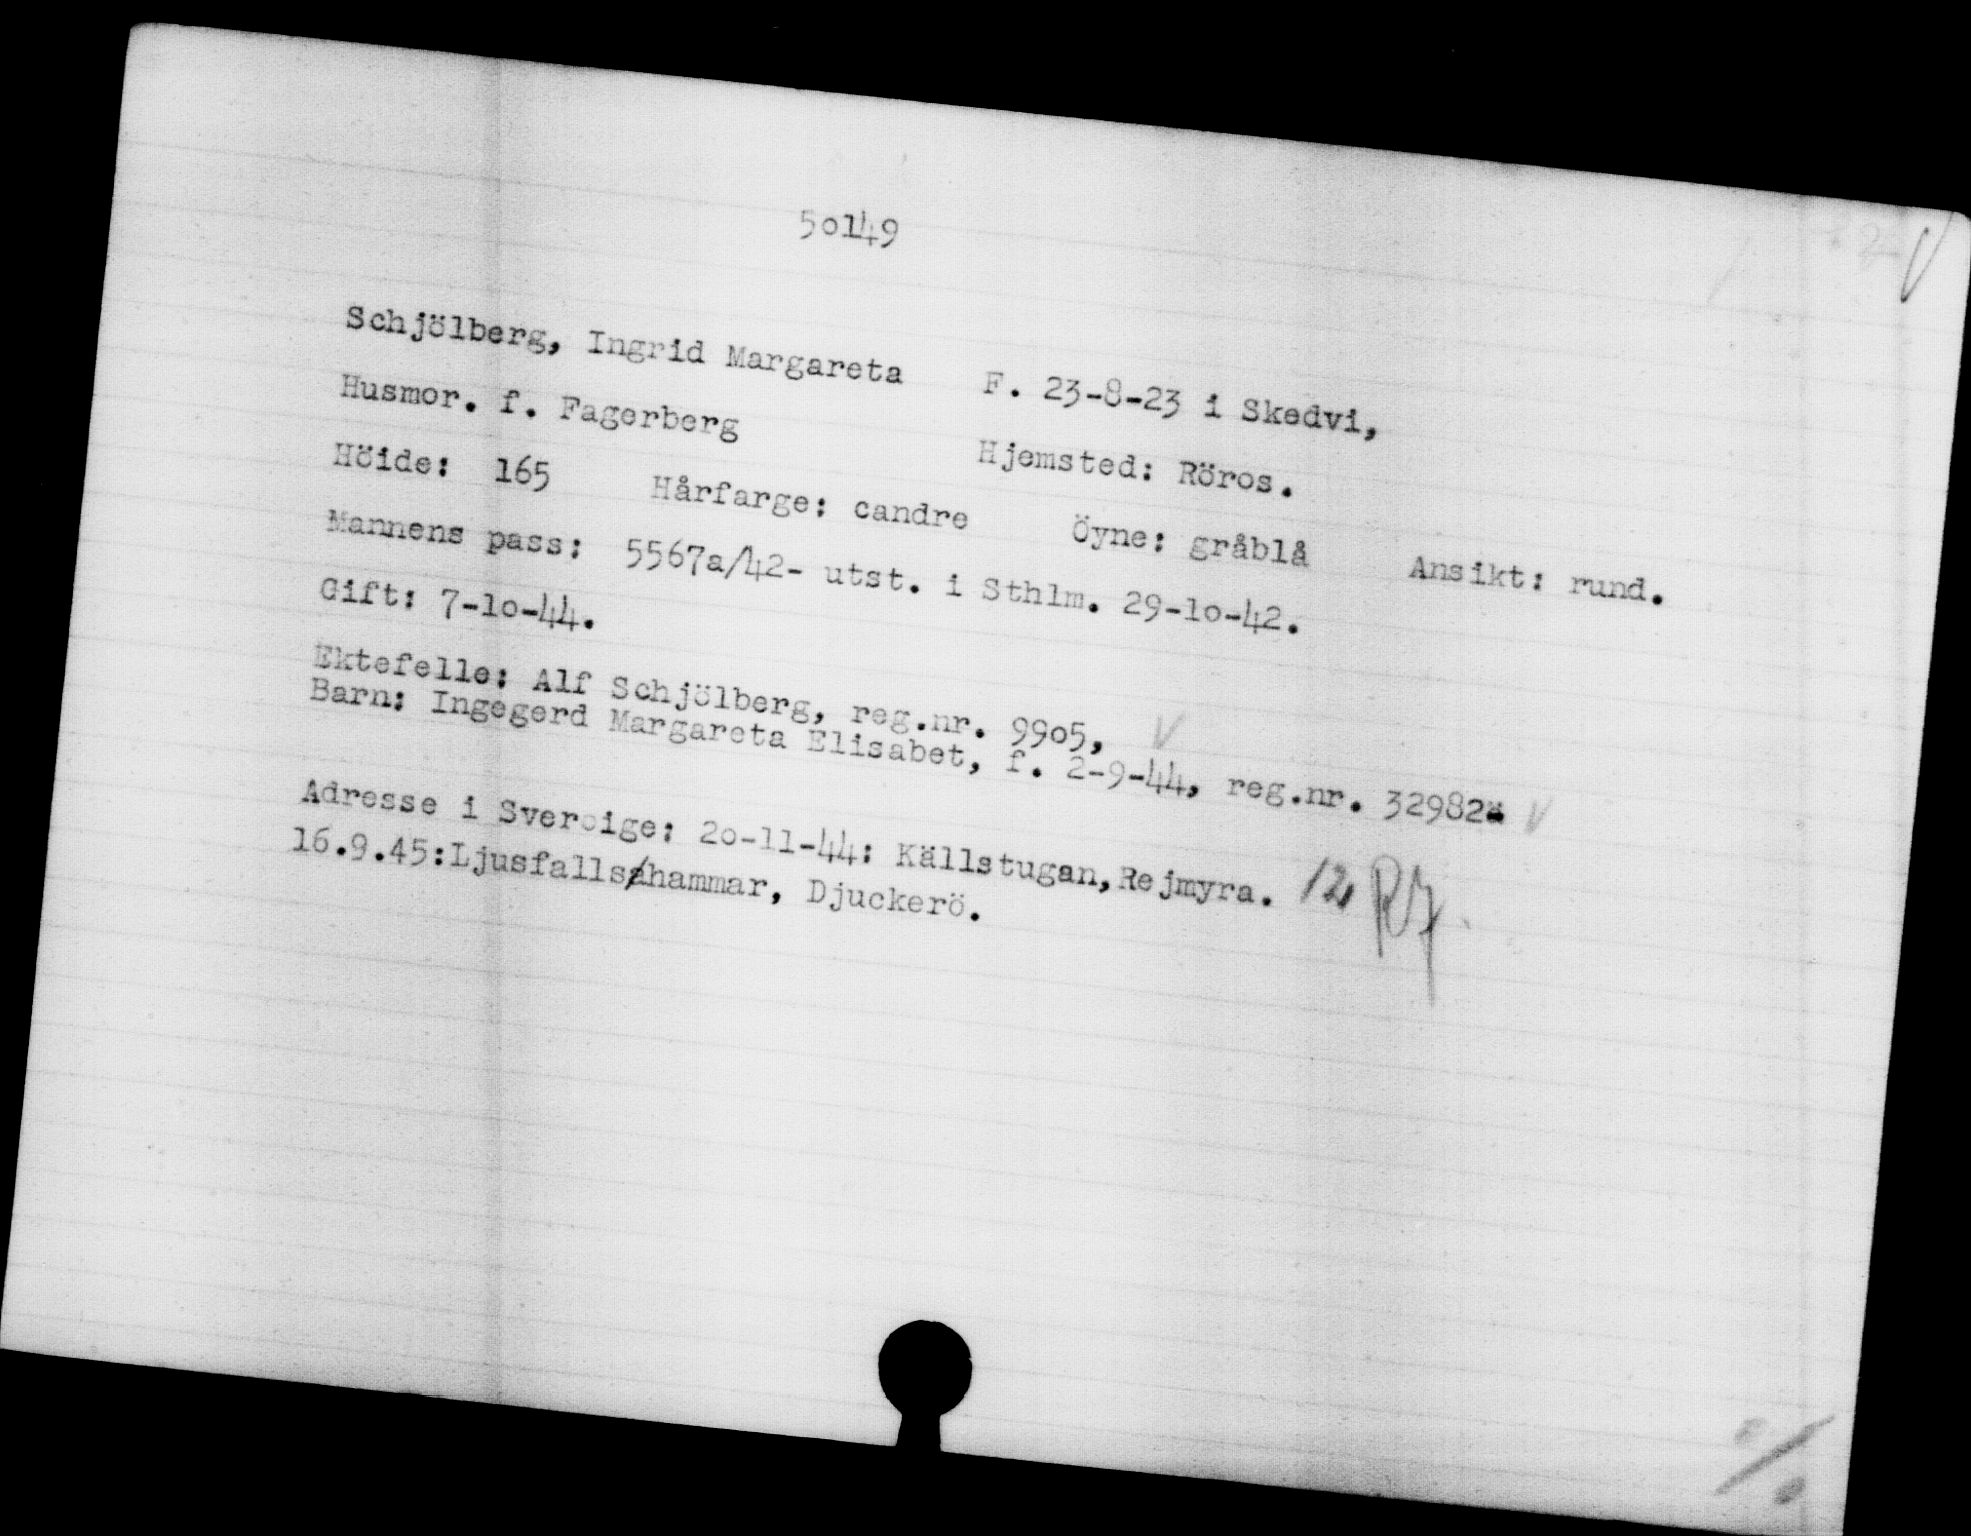 50149
Schjölberg, Ingrid Margareta F. 23-8-23 i Skedvi,
Husmor. f. Fagerberg Hjemsted: Röros.
Höide: 165 Hårfarge: candre Öyne: gråblå Ansikt: rund.
Mannens pass: 5567a/42- utst. i Sthlm. 29-10-42.
Gift: 7-10-44.
Ektefelle: Alf Schjölberg, reg.nr. 9905, V
Barn: Ingegerd Margareta Elisabet, f. 2-9-44, reg.nr. 32982a V
Adresse i Sverige: 20-11-44: Källstugan, Rejmyra. 12
16.9.45:Ljusfallshammar, Djuckerö.